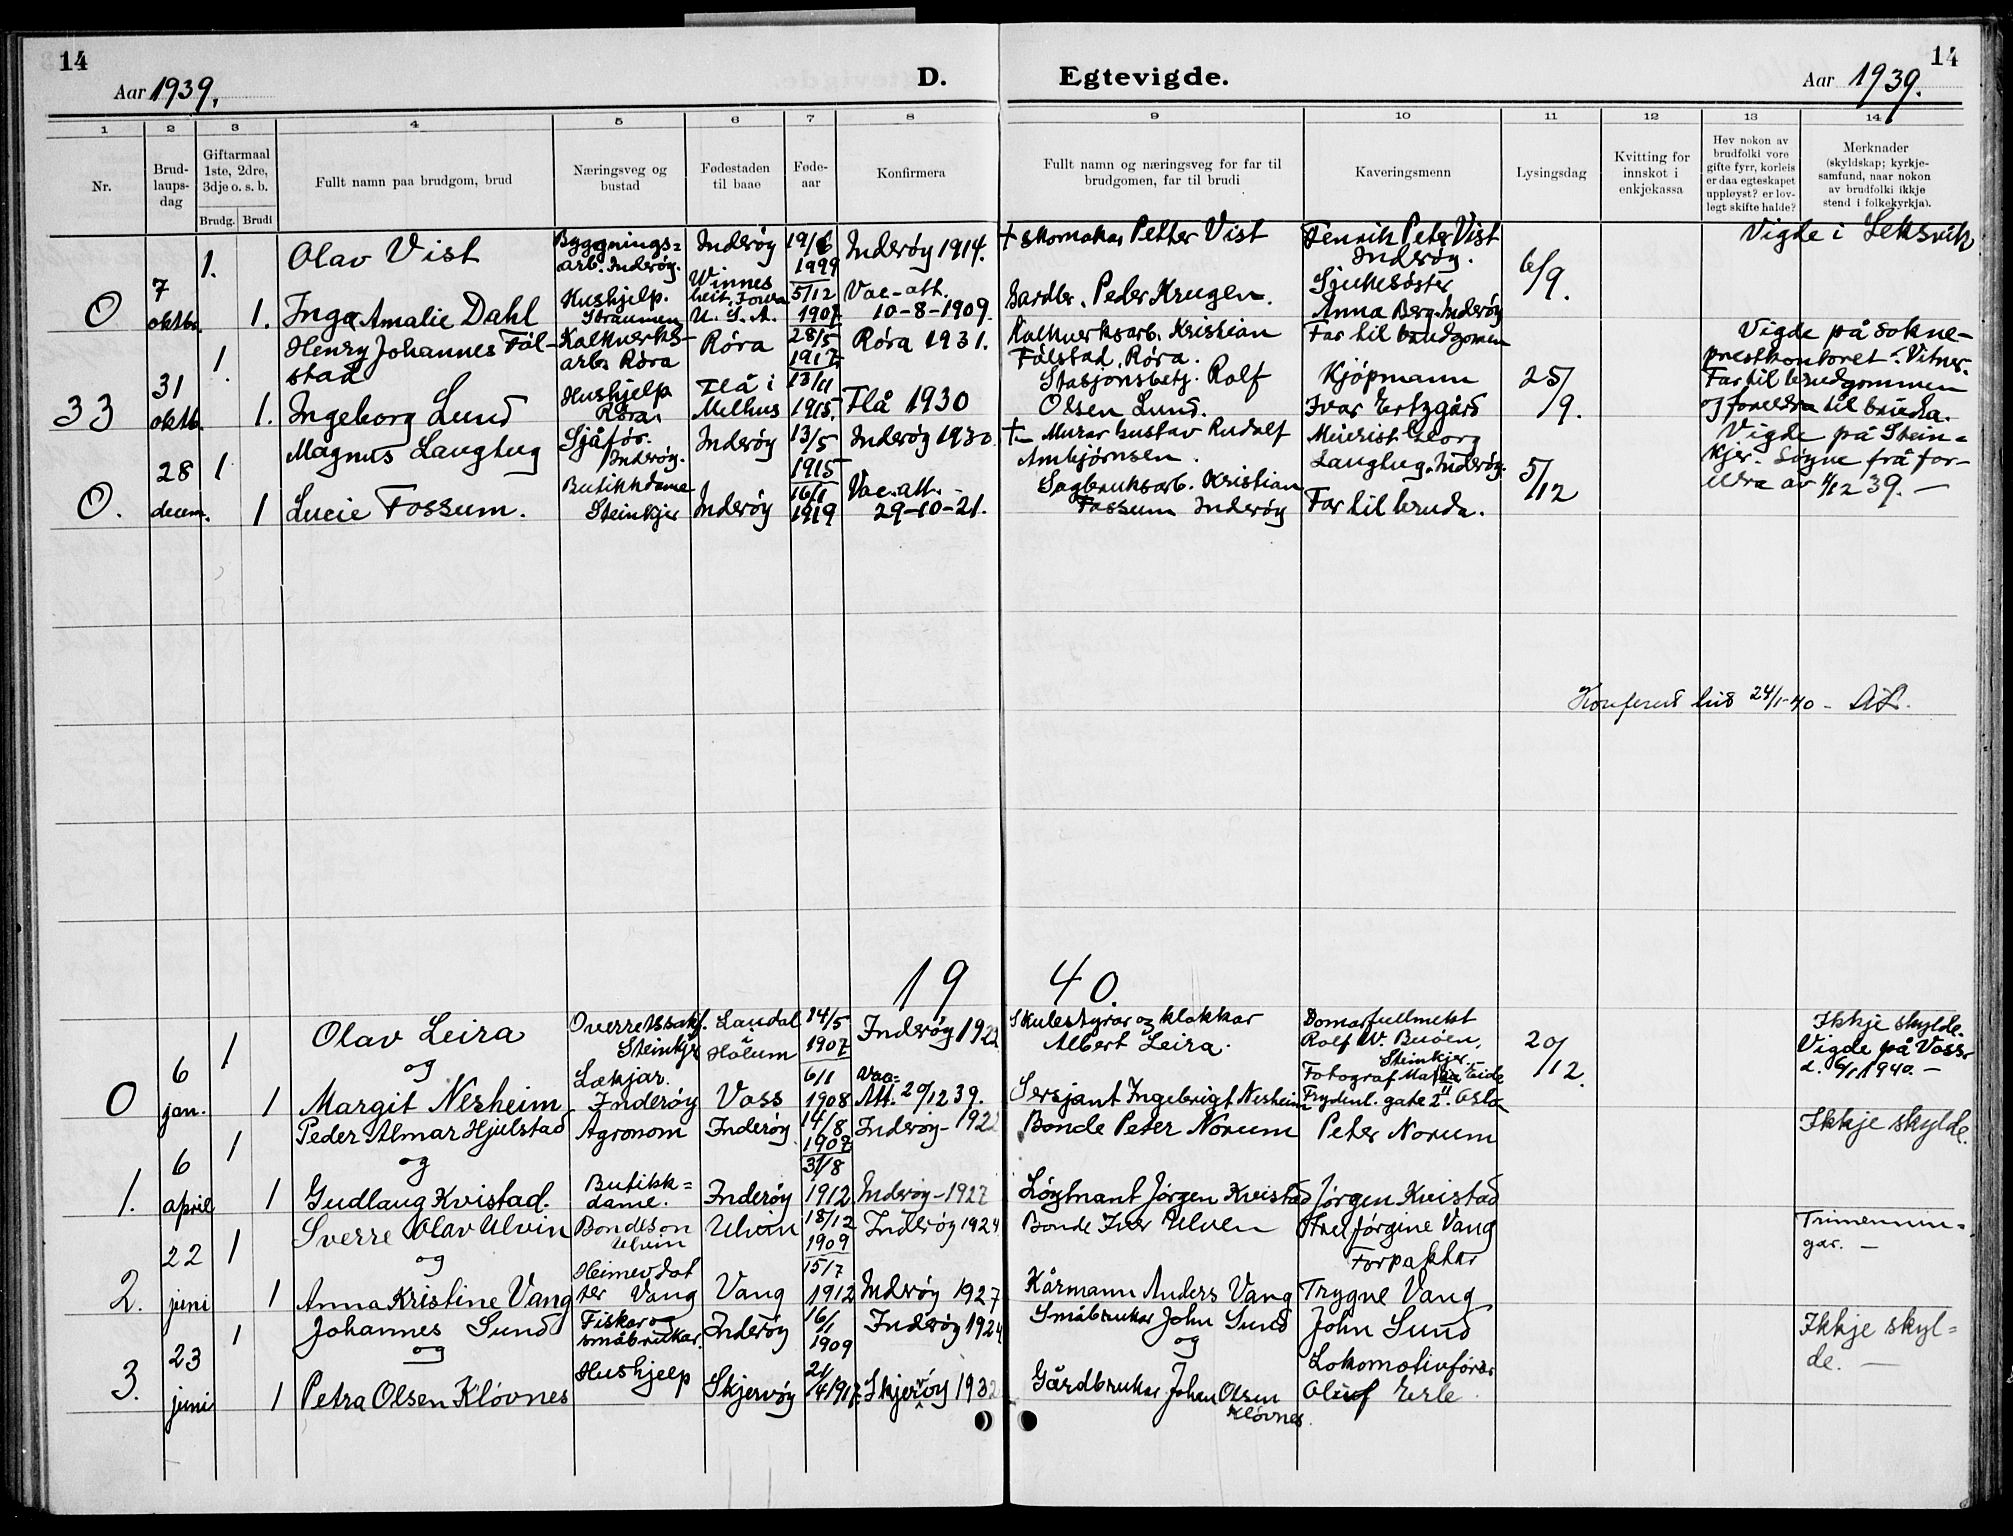 14
Aar 1939.
D.
Egtevigde.
Aar 1939.
14
1 2 3 4 5 6 7 8 9 10 11 12 13 14
Nr.
Brud-
laups-
dag
Giftarmaal
1ste, 2dre,
3dje o. s. b.
Brudg. Brudi
Fullt namn paa brudgom, brud
Næringsveg og
bustad
Fødestaden
til baae
Føde-
aar
Konfirmera
Fullt namn og næringsveg for far til
brudgomen, far til brudi
Kaveringsmenn
Lysingsdag
Kvitting for
innskot i
enkjekassa
Hev nokon av
brudfolki vore
gifte fyrr, korleis
er daa egteskapet
uppløyst? er lov-
legt skifte halde?
Merknader
(skyldskap; kyrkje-
samfund, naar nokon
av brudfolki ikkje
stend i folkekyrkja).
O
7
oktbr.
1.
Olav Vist
Byggnings=
arb. Inderøy.
Inderøy
19/6
1999
Inderøy 1914.
† skomakar Petter Vist
Fenrik Peter Vist
Inderøy.
6/9.
Vigde i Leksvik
1.
Inga Amalie Dahl
Hushjelp.
Straumen
Winnes
heit. Iowa
U. S. A.
5/12
1907
Vac-att.
10-8-1909.
Gardbr. Peder Krugen.
Sjukesøster
Anna Berg. Inderøy
33
31
oktb.
1.
Henry Johannes Fål-
stad
Kalkverks-
arb. Røra
Røra
28/5
1917
Røra 1931.
Kalkverksarb. Kristian
Fålstad, Røra.
Far til brudgomen
25/9.
Vigde på sokne-
prestkontoret. Vitner.
Far til brudgommen
og foreldra til brudea.
1.
Ingeborg Lund
Hushjelp
Røra.
Flå i
Melhus
13/11
1915.
Flå 1930
Stasjonsbetj. Rolf
Olsen Lund.
Kjøpmann
Ivar Ertzgård
O.
28
decem.
1
Magnus Laugtug
Sjåfør.
Inderøy.
Inderøy
13/5
1915
Inderøy 1930
† Murar Gustav Rudolf
Ambjørnsen.
Meierist Georg
Laugtug. Inderøy.
5/12
Vigde på Stein=
kjer. Søgne frå for-
eldra av 4/12 39. —
1
Lucie Fossum.
Butikkdame
Steinkjer
Inderøy
16/1
1919
Vac.att.-
29-10-21.
Sagbruksarb. Kristian
Fossum Inderøy
Far til bruda.
24/1-40 -
19 40.
O
6
jan.
1
Olav Leira
og
Overrettssakf.
Steinkjer
Laudal
Hålum
14/5
1907
Inderøy 1922
Skulestyrar og klokkar
Albert Leira.
Domarfullmekt
Rolf W. Buøen,
Steinkjer.
20/12.
Ikkje skylde.
Vigde på Voss
d. 6/1 1940. —
1
Margit Nesheim
Lækjar.
Inderøy
Voss
6/1
1908
Vac=
Att. 20/12 39.
Sersjant Ingebrigt Nesheim
Fotograf Maria Eide
Frydenl. gate 2 II Oslo
1.
6
april
1
Peder Almar Hjulstad
og
Agronom
Inderøy
14/8
1907
Inderøy- 1922
Bonde Peter Norum
Peter Norum
Ikkje skylde.
1
Gudlaug Kvistad.
Butikk=
dame.
Inderøy
31/8
1912
Inderøy-1927
Løytnant Jørgen Kvistad
Jørgen Kvistad
2.
22
juni
1
Sverre Olav Ulvin
og
Bondeson
Ulvin
Ulvin
18/12
1909
Inderøy 1924
Bonde Iver Ulven
Frk Jørgine Vang
Trimennin=
gar. —
1
Anna Kristine Vang
Heimevdot
ter Vang
Vang
15/7
1912
Inderøy 1927
Kårmann Anders Vang
Forpaktar
Trygve Vang
3.
23
juni
1
Johannes Sund
og
Fiskar og
småbrukar.
Inderøy
16/1
1909
Inderøy 1924
Småbrukar John Sund
og
John Sund
Ikkje skyl=
de. —
1
Petra Olsen Kløvnes
Hushjelp
Skjervøy
21/4 1917.
Skjervøy 1932
Gårdbrukar Johan Olsen
Kløvnes.
Lokomotivførar
Oluf Erle.